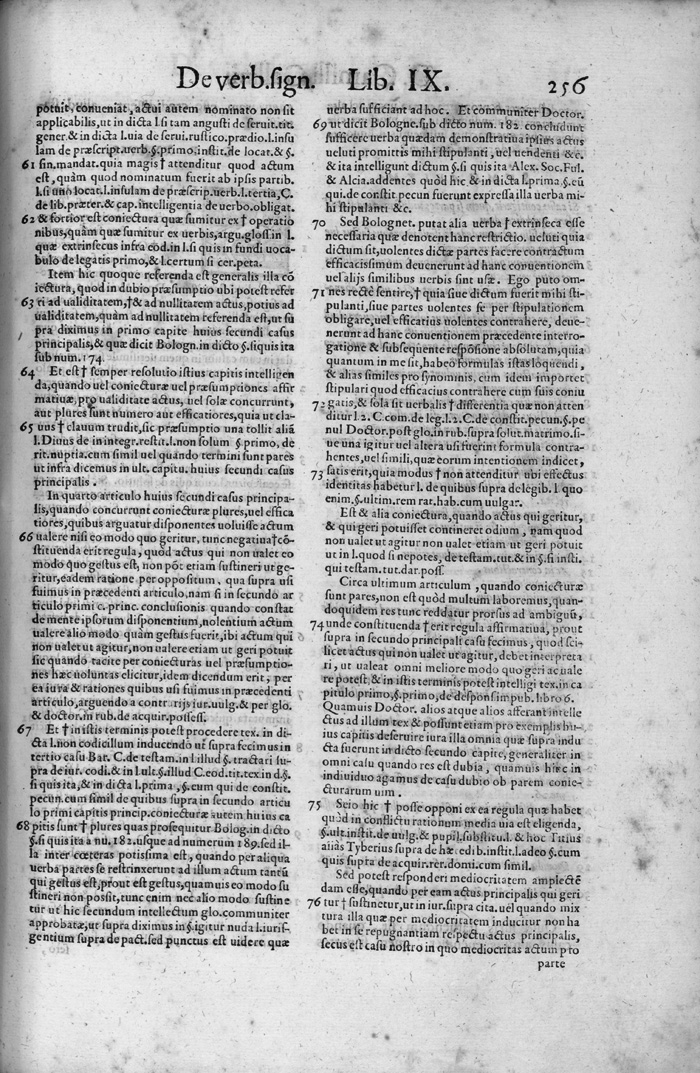 De verb. sign. Lib. IX. 256
potuit, conueniāt, actui autem nominato non sit
applicabilis, ut in dicta l. si tam angusti de seruit. tit.
gener. & in dicta l. uia de serui. rustico. prædio. l. insu
lam de præscript. uerb. §. primo. instit. de locat. & §.
61 fin. mandat. quia magis † attenditur quod actum
est, quàm quod nominatum fuerit ab ipsis partib.
l. si uno locat. l. insulam de præscrip. uerb. l. tertia, C.
de lib. præter. & cap. intelligentia de uerbo. obligat.
62 & fortior est coniectura quæ sumitur ex † operatio
nibus, quàm quæ sumitur ex uerbis, argu. gloss. in l.
quæ extrinsecus infra eod. in l. si quis in fundi uoca
bulo de legatis primo, & l. certum si cer. peta.
Item hic quoque referenda est generalis illa cō
iectura, quod in dubio præsumptio ubi potest refer
63 ri ad ualiditatem, † & ad nullitatem actus, potius ad
ualiditatem, quàm ad nullitatem referenda est, ut su
pra diximus in primo capite huius secundi casus
principalis, & quæ dicit Bologn. in dicto §. si quis ita
sub num. 174.
64 Et est † semper resolutio istius capitis intelligen
da, quando uel coniecturæ uel præsumptiones affir
matiuæ, pro ualiditate actus, uel solæ concurrunt,
aut plures sunt numero aut efficatiores, quia ut cla-
65 uus † clauum trudit, sic præsumptio una tollit aliā
l. Diuus de in integr. restit. l. non solum §. primo, de
rit. nuptia. cum simil. uel quando termini sunt pares
ut infra dicemus in ult. capitu. huius secundi casus
principalis.
In quarto articulo huius secundi casus principa-
lis, quando concurrunt coniecturæ plures, uel effica
tiores, quibus arguatur disponentes uoluisse actum
66 ualere nisi eo modo quo geritur, tunc negatiua † cō-
stituenda erit regula, quod actus qui non ualet eo
modo quo gestus est, non pōt etiam sustineri ut ge-
ritur, eadem ratione per oppositum, qua supra usi
fuimus in præcedenti articulo, nam si in secundo ar
ticulo primi c. princ. conclusionis quando constat
de mente ipsorum disponentium, nolentium actum
ualere alio modo quàm gestus fuerit, ibi actum qui
non ualet ut agitur, non ualere etiam ut geri potuit
sic quando tacite per coniecturas uel præsumptio-
nes hæc uoluntas elicitur, idem dicendum erit, per
ea iura & rationes quibus usi fuimus in præcedenti
articulo, arguendo a contrarijs iur. uulg. & per glo.
& doctor. in rub. de acquir. possess.
67 Et † in istis terminis potest procedere tex. in di-
cta l. non codicillum inducendo ut supra fecimus in
tertio casu Bar. C. de testam. in l. illud §. tractari su
pra de iur. codi. & in l. ult. §. illud C. eod. tit. tex. in d. §.
si quis ita, & in dicta l. prima, §. cum qui de constit.
pecun. cum simil. de quibus supra in secundo articu
lo primi capitis princip. coniecturæ autem huius ca
68 pitis sunt † plures quas prosequitur Bolog. in dicto
§. si quis ita a nu. 182. usque ad numerum 189. sed il-
la inter cœteras potissima est, quando per aliqua
uerba partes se restrinxerunt ad illum actum tantū
qui gestus est, prout est gestus, quamuis eo modo su
stineri non possit, tunc enim nec alio modo sustine
tur ut hic secundum intellectum glo. communiter
approbatæ, ut supra diximus in §. igitur nuda l. iuris-
gentium supra de pact. sed punctus est uidere quæ
uerba sufficiant ad hoc. Et communiter Doctor.
69 ut dicit Bologne. sub dicto num. 182. concludunt
sufficere uerba quædam demonstratiua ipsius actus
ueluti promittis mihi stipulanti, uel uendenti &c.
& ita intelligunt dictum §. si quis ita Alex. Soc. Ful.
& Alcia. addentes quòd hic & in dicta l. prima §. eū
qui. de constit. pecun. fuerunt expressa illa uerba mi-
hi stipulanti &c.
70 Sed Bolognet. putat alia uerba † extrinseca esse
necessaria quæ denotent hanc restrictio. ueluti quia
dictum sit, uolentes dictæ partes facere contractum
efficacissimum deuenerunt ad hanc conuentionem
uel alijs similibus uerbis sint usæ. Ego puto om-
71 nes rectè sentire, † quia siue dictum fuerit mihi sti-
pulanti, siue partes uolentes se per stipulationem
obligare, uel efficatius uolentes contrahere, deue-
nerunt ad hanc conuentionem præcedente interro-
gatione & subsequente respōsione absolutam, quia
quantum in me sit, habeo formulas istas loquendi,
& alias similes pro synonimis, cum idem importet
stipulari quod efficacius contrahere cum suis coniu
72 gatis, & sola sit uerbalis † differentia quæ non atten
ditur l. 2. C. com. de leg. l. 2. C. de constit. pecun. §. pe
nul. Doctor. post glo. in rub. supra solut. matrimo. si-
ue una igitur uel altera usi fuerint formula contra-
hentes, uel simili, quæ eorum intentionem indicet,
73 satis erit, quia modus † non attenditur ubi effectus
identitas habetur l. de quibus supra de legib. l. quo
enim. §. ultim. rem rat. hab. cum uulgar.
Est & alia coniectura, quando actus qui geritur,
& qui geri potuisset contineret odium, nam quod
non ualet ut agitur non ualet etiam ut geri potuit
ut in l. quod si nepotes, de testam. tut. & in §. si insti.
qui testam. tut. dar. poss.
Circa ultimum articulum, quando coniecturæ
sunt pares, non est quòd multum laboremus, quan-
doquidem res tunc reddatur prorsus ad ambiguū,
74 unde constituenda † erit regula affirmatiua, prout
supra in secundo principali casu fecimus, quod sci-
licet actus qui non ualet ut agitur, debet interpreta
ri, ut ualeat omni meliore modo quo geri ac uale
re potest, & in istis terminis potest intelligi tex. in ca
pitulo primo, §. primo, de desponsi. im pub. libro 6.
Quamuis Doctor. alios atque alios afferant intelle
ctus ad illum tex. & possunt etiam pro exemplis hu-
ius capitis deseruire iura illa omnia quæ supra indu
cta fuerunt in dicto secundo capite, generaliter in
omni casu quando res est dubia, quamuis hic in
indiuiduo agamus de casu dubio ob parem conie-
cturarum uim.
75 Scio hic † posse opponi ex ea regula quæ habet
quòd in conflictu rationum media uia est eligenda,
§. ult. instit. de uulg. & pupil. substitu. l. & hoc Titius
aliàs Tyberius supra de hæredib. instit. l. adeo §. cum
quis supra de acquir. rer. domi. cum simil.
Sed potest responderi mediocritatem amplectē
dam esse, quando per eam actus principalis qui geri
76 tur † sustinetur, ut in iur. supra cita. uel quando mix
tura illa quæ per mediocritatem inducitur non ha
bet in se repugnantiam respectu actus principalis,
secus est casu nostro in quo mediocritas actum pro
parte